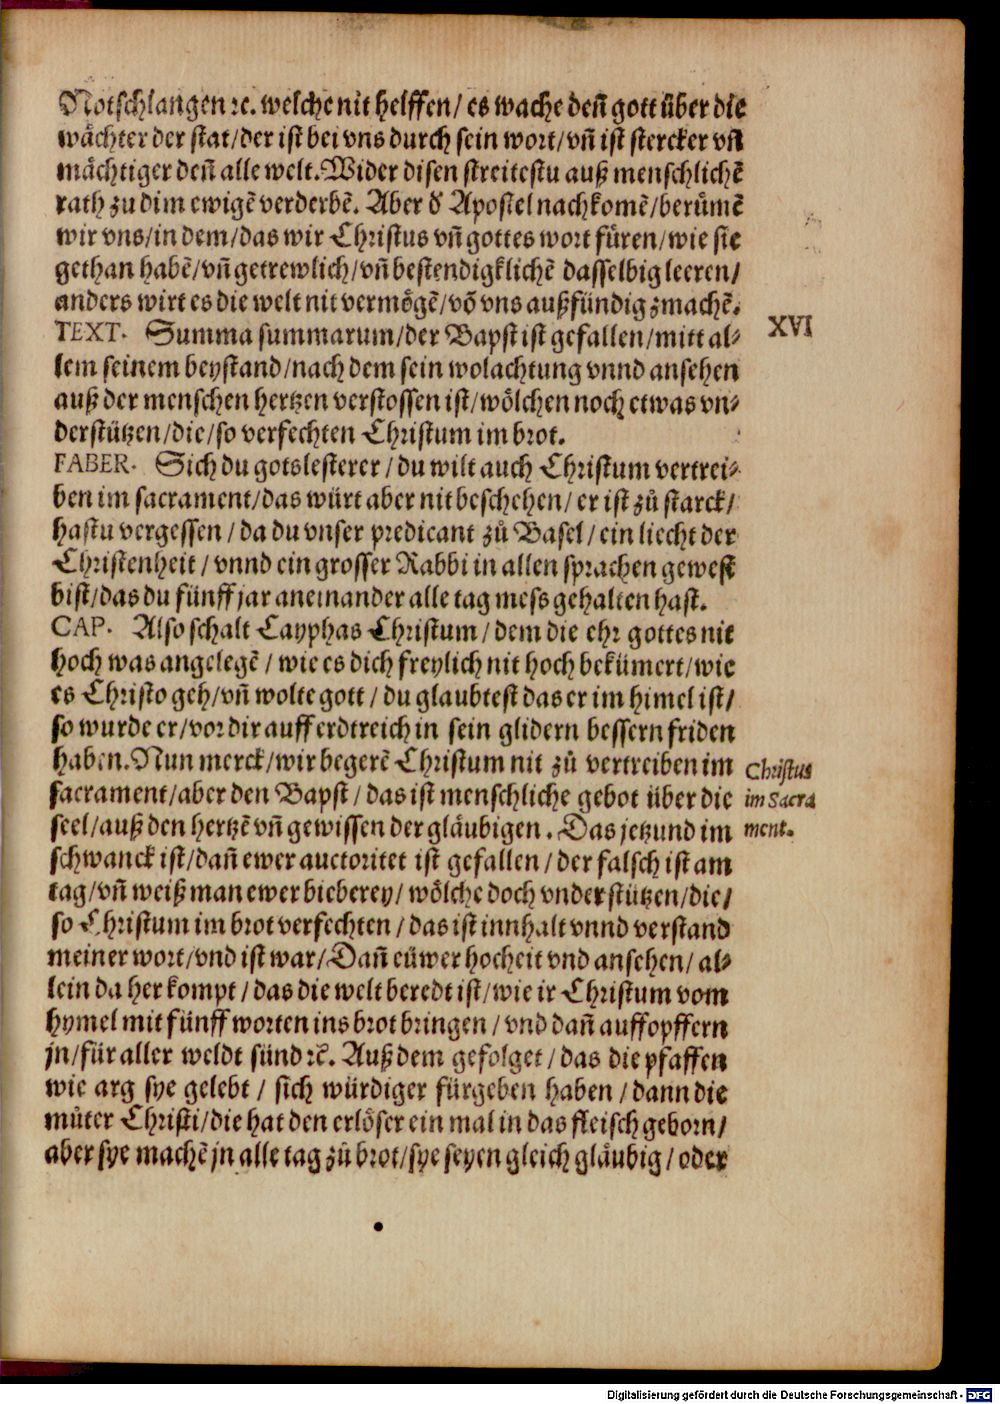 Notschlangen ꝛc. welche nit helffen/ es wache deñ gott über die
wächter der stat/der ist bei vns durch sein wort/vñ ist stercker vñ
mächtiger deñ alle welt. Wider disen streitestu auß menschlichē
rath zu dim ewigē verderbē. Aber d' Apostel nachkomē/berümē
wir vns/in dem/das wir Christus vñ gottes wort füren/wie sie
gethan habē/vñ getrewlich/vñ bestendigklichē dasselbig leeren/
anders wirt es die welt nit vermögē/vō vns außfündig zmachē.
TEXT. Summa summarum/der Bapst ist gefallen/mitt al⸗
XVI
lem seinem beystand/nach dem sein wolachtung vnnd ansehen
auß der menschen hertzen verstossen ist/wölchen noch etwas vn⸗
derstützen/die/so verfechten Christum im brot.
FABER. Sich du gotslesterer/du wilt auch Christum vertrei⸗
ben im sacrament/das würt aber nit beschehen/ er ist zů starck/
hastu vergessen/da du vnser predicant zů Basel/ein liecht der
Christenheit/vnnd ein grosser Rabbi in allen sprachen gewest
bist/das du fünff jar aneinander alle tag mess gehalten hast.
CAP. Also schalt Cayphas Christum/dem die ehr gottes nit
hoch was angelegē/wie es dich freylich nit hoch bekümert/wie
es Christo geh/vñ wolte gott/du glaubtest das er im himel ist/
so wurde er/vor dir auff erdtreich in sein glidern bessern friden
haben. Nun merck/wir begerē Christum nit zů vertreiben im
sacrament/aber den Bapst/das ist menschliche gebot über die
seel/auß den hertzē vñ gewissen der gläubigen. Das jetzund im
Christus
im Sacra
ment.
schwanck ist/dañ ewer auctoritet ist gefallen/der falsch ist am
tag/vñ weiß man ewer bieberey/wölche doch vnderstützen/die/
so Christum im brot verfechten/das ist innhalt vnnd verstand
meiner wort/vnd ist war/Dañ eüwer hocheit vnd ansehen/al⸗
lein da her kompt/das die welt beredt ist/wie ir Christum vom
hymel mit fünff worten ins brot bringen/vnd dañ auffopffern
jn/für aller weldt sünd ꝛc̄. Auß dem gefolget/das die pfaffen
wie arg sye gelebt/sich würdiger fürgeben haben/dann die
můter Christi/die hat den erlöser ein mal in das fleisch geborn/
aber sye machē jn alle tag zů brot/sye seyen gleich gläubig/oder
Digitalisierung gefördert durch die Deutsche Forschungsgemeinschaft - DFG